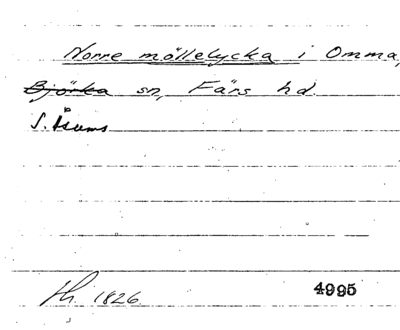 Norre möllelycka i Omma,
Björka sn, Färs hd.
S. Åsums
1826 4995